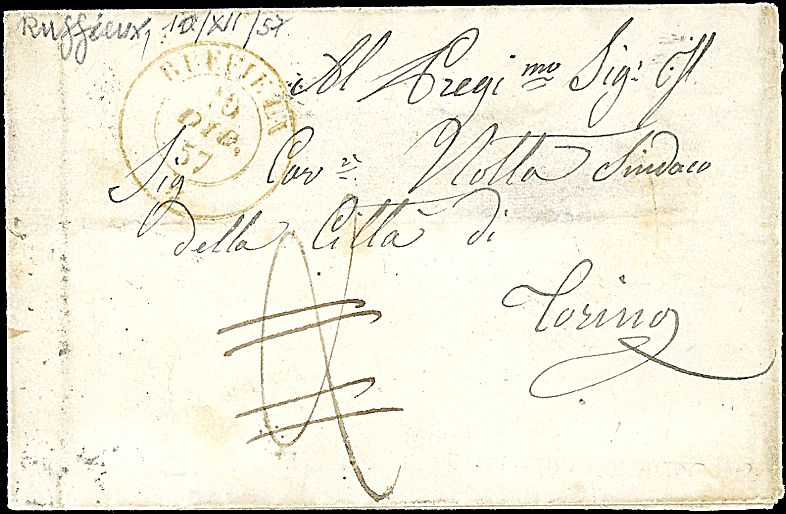 Ruffieux, 10/XII/57
RUFFIEUX
10
DIC.
57
Al Pregi.mo Sig: Il
Sig Cav.e Notta Sindaco
della Città di
Torino